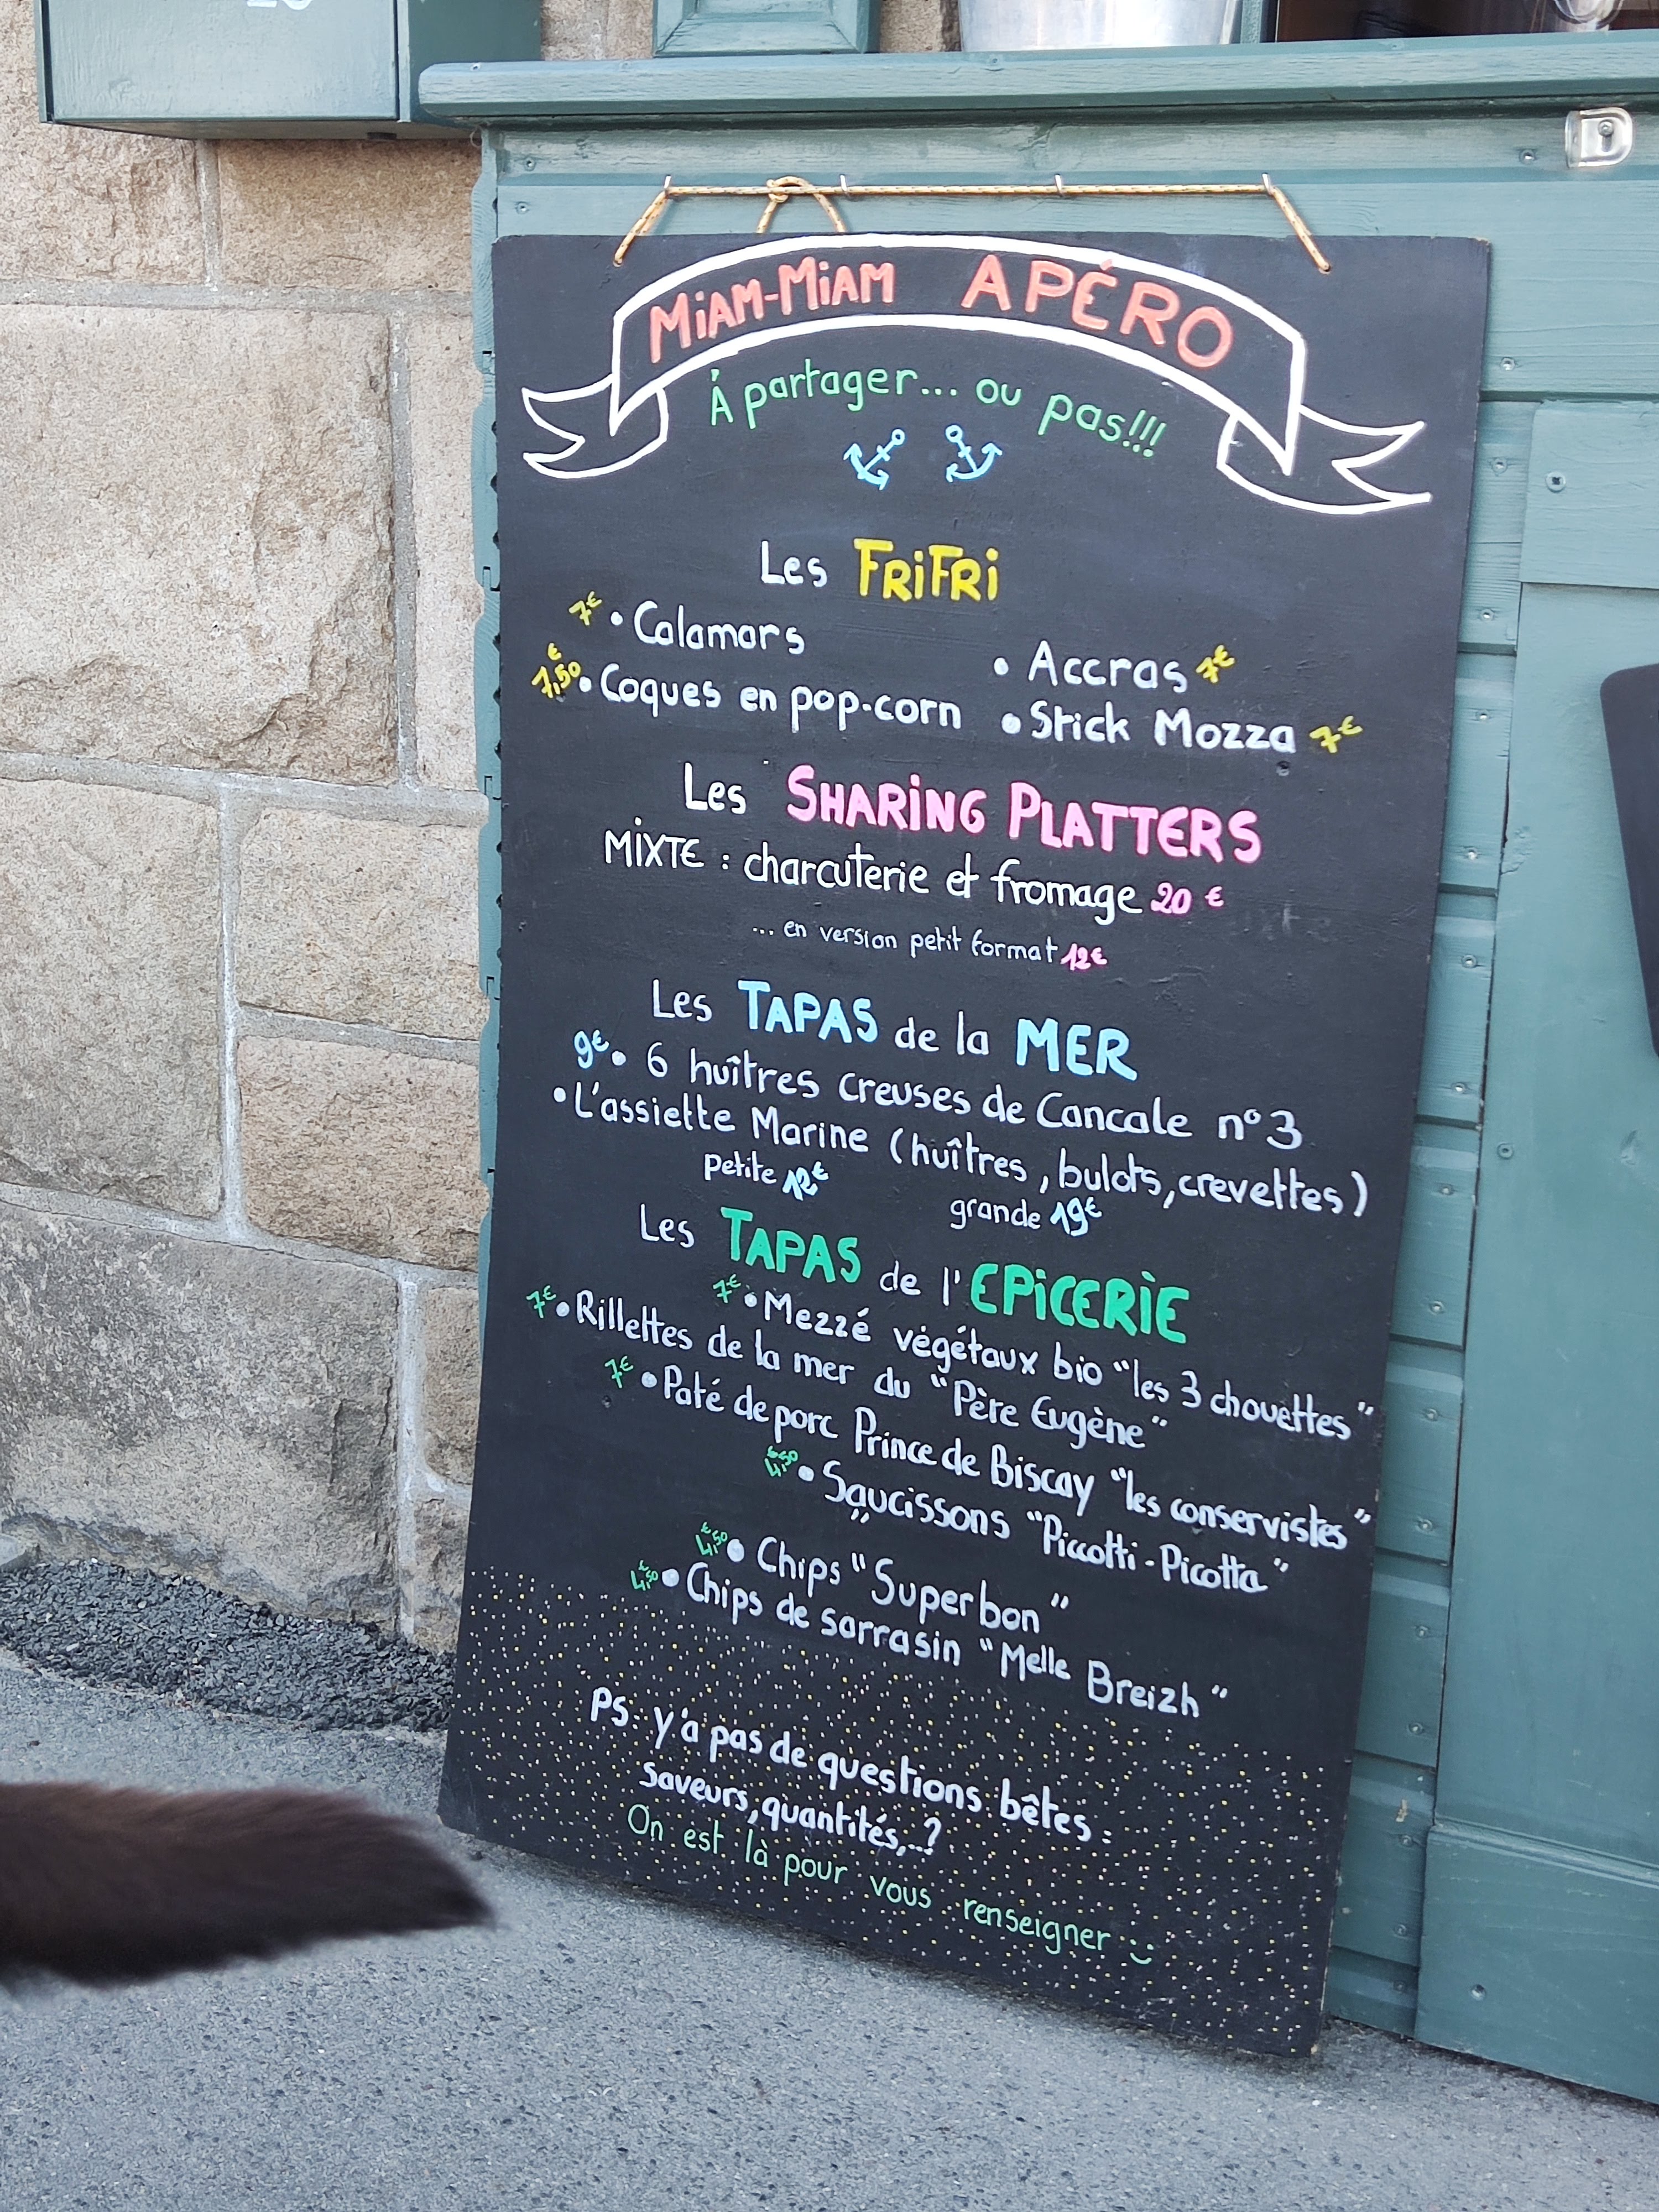 MiAM-MiAM APÉRO
À partager... ou pas!!!
Les FRiFRi
7€ • Calamars
• Accras 7€
7,50€ • Coques en pop-corn
• Stick Mozza 7€
Les SHARiNG PLATTERS
MiXTE : charcuterie et fromage 20 €
... en version petit format 12€
Les TAPAS de la MER
9€ • 6 huîtres creuses de Cancale n°3
• L'assiette Marine (huîtres, bulots, crevettes)
petite 12€ grande 19€
Les TAPAS de l'EPiCERiE
7€ • Mezzé végétaux bio "les 3 chouettes"
7€ • Rillettes de la mer du "Père Eugène"
7€ • Paté de porc Prince de Biscay "les conservistes"
4,50€ • Saucissons "Piccotti-Picotta"
4,50€ • Chips "Superbon"
4,50€ • Chips de sarrasin "Melle Breizh"
PS: y'a pas de questions bêtes :
saveurs, quantités,...?
On est là pour vous renseigner :)